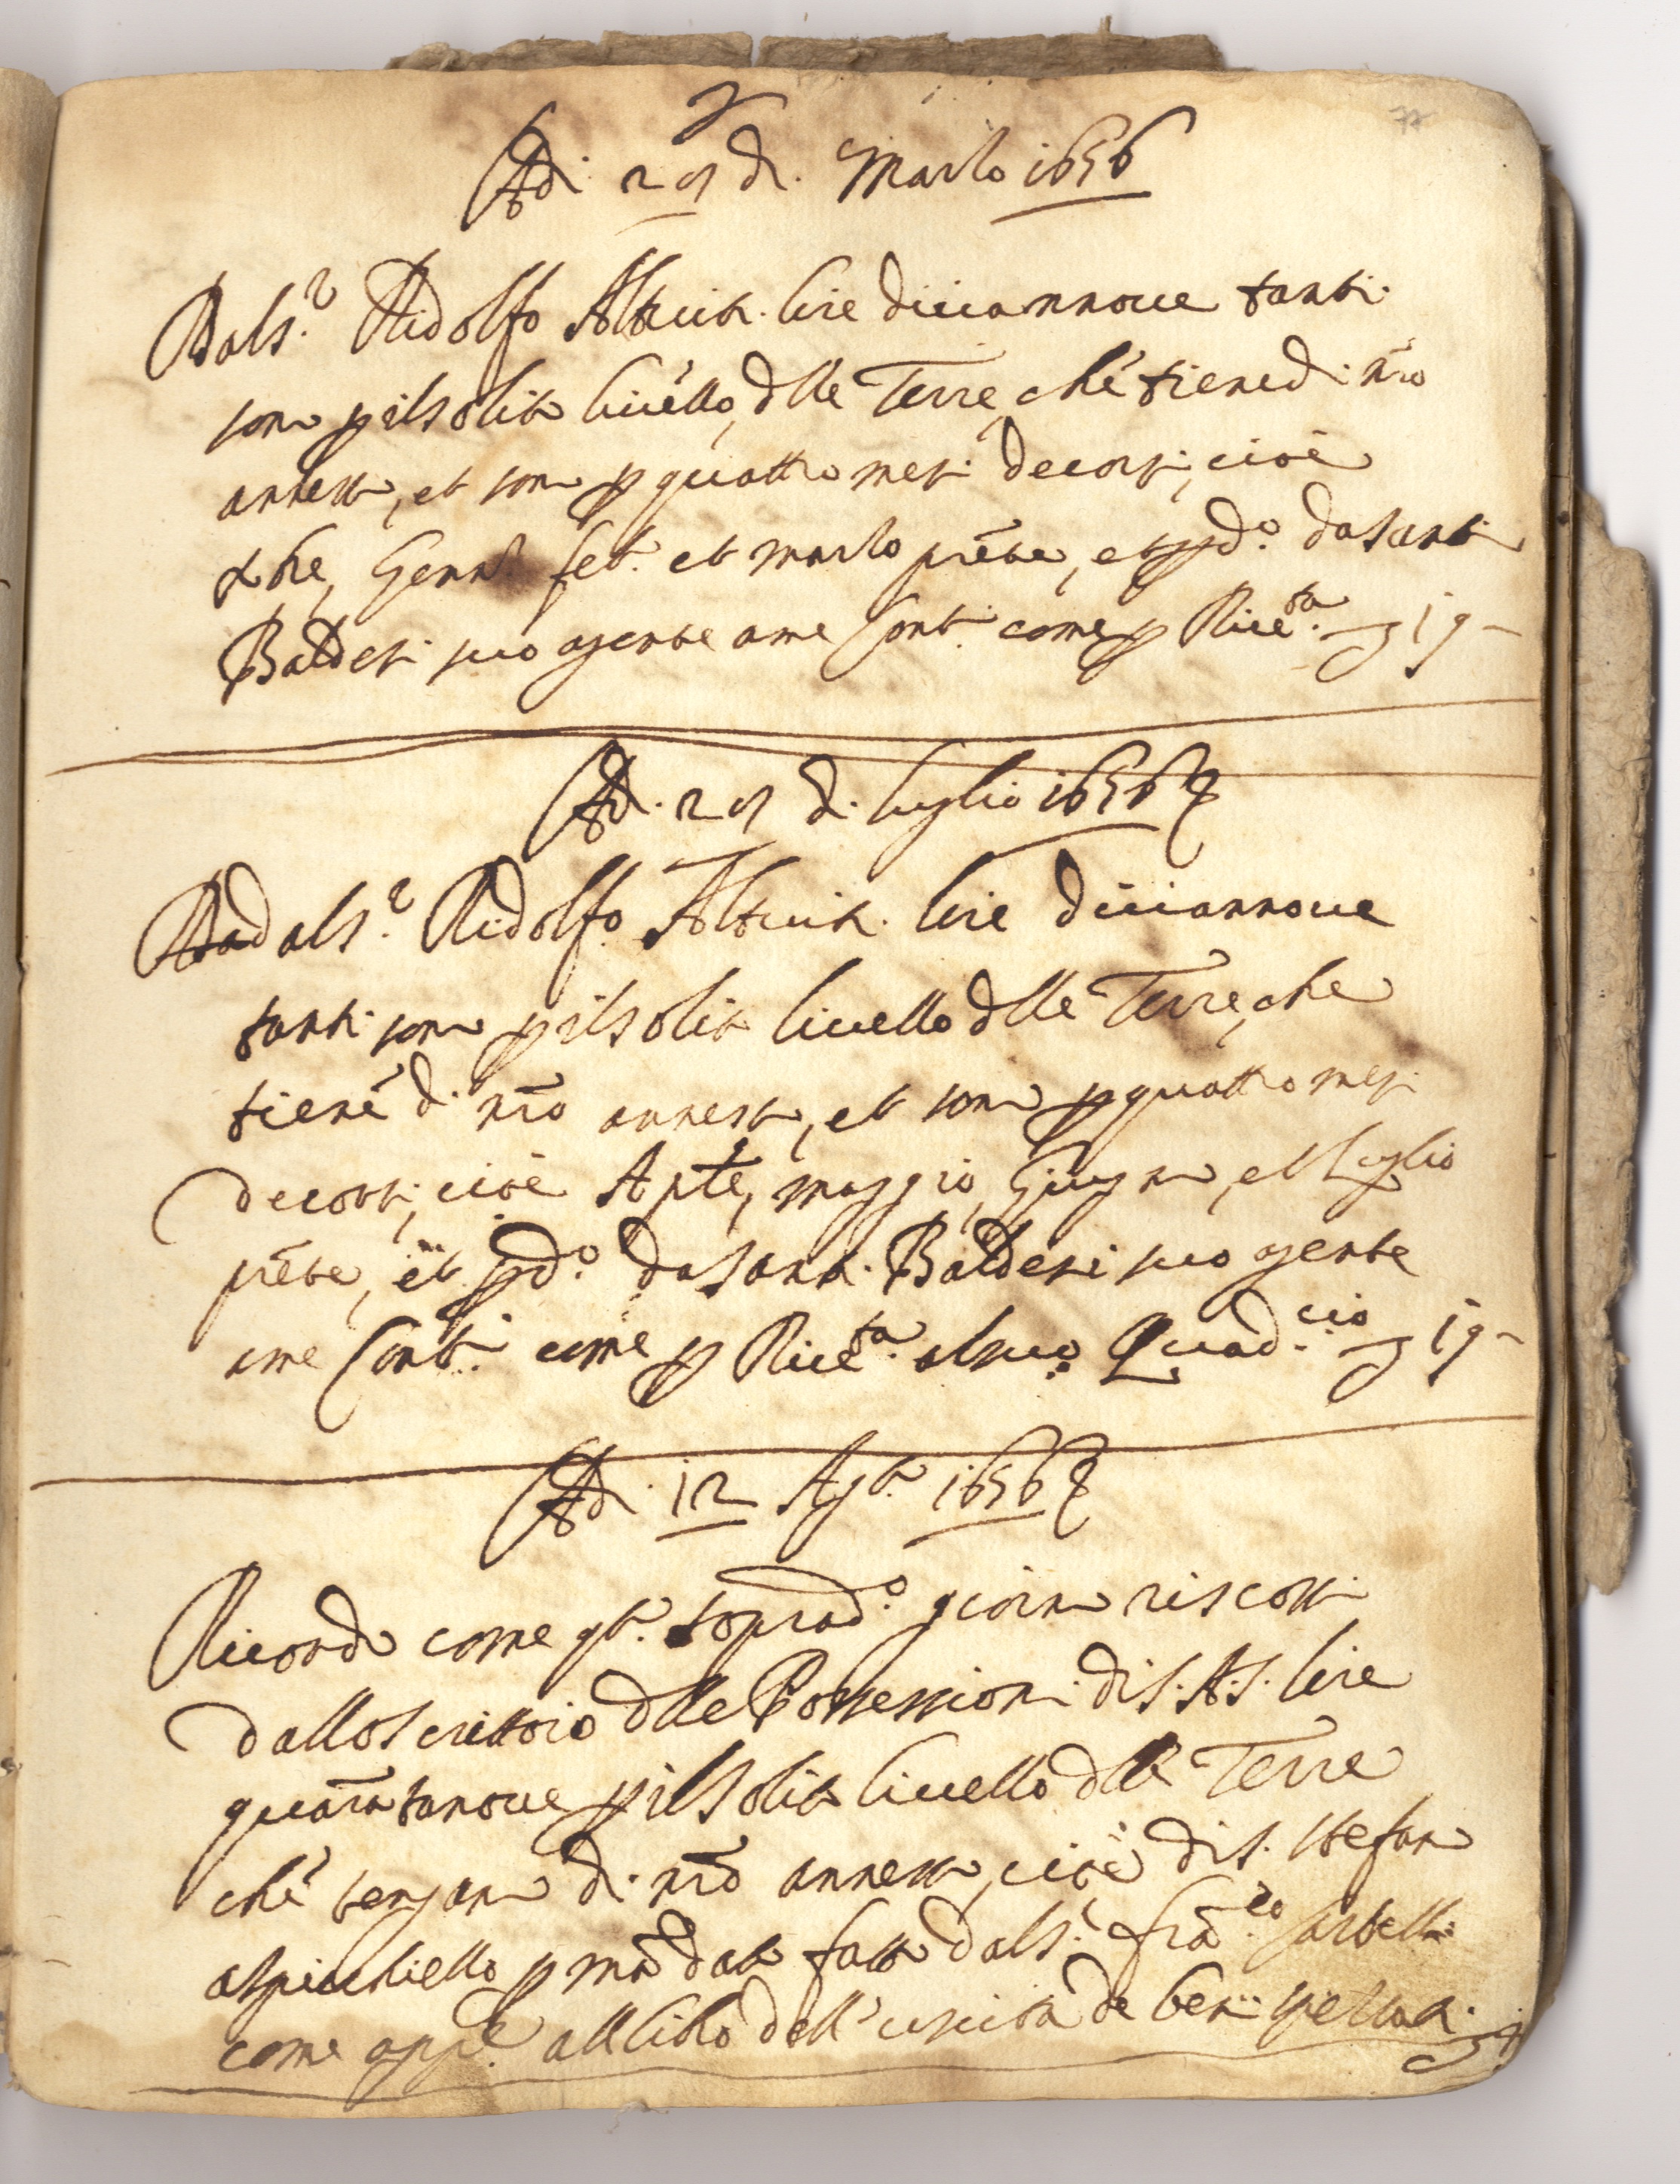 Adi 29 di Marzo 1656
Dal S.r Ridolfo Altuiti lire diciannoue tanti
sono p il solito liuello dlle Terre, che tiene di nro
annesso, et sono p quattro mesi decorsi, cioè
Xbre, Genn.o feb.o et marzo prēte, et p d.o da Santi
Baldesi suo agente a me Cont.i come p Riceu.ta 19 -
Adi 29 di luglio 1656
Dal S.r Ridolfo Altuiti lire diciannoue
tanti sono p il solito liuello dlle Terre, che
tiene di nro annesso, et sono p quattro mesi
decorsi, cioè Aple, maggio, Giugno, et luglio
prēte, et p d.o da Santi Baldesi suo agente
a me Cont.i come p Riceu.ta al suo Quad.cio 19 -
Adi 12 Ag.to 1656
Ricordo come q.to soprad.o giorno riscossi
dallo scrittoio dlle Possessioni di S. A. S. lire
quarātanoue p il solito liuello dlle Terre
che tengano di nro annesso, cioè di S. Stefano
a spicchiello p mādato fatto dal S.r Frā.co
come app.e al libro dell' unita de beni